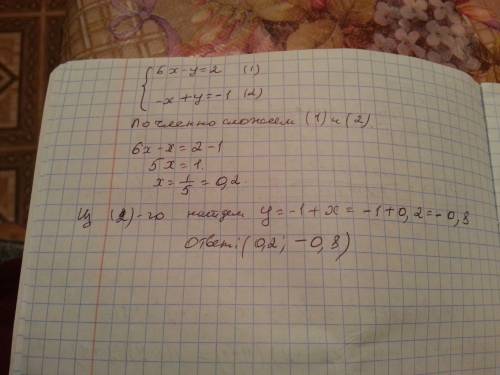 6x-y=2 (1)
-x+y=-1 (2)
Почленно сложем (1) и (2)
6x-x=2-1
5x=1.
x=1/5=0,2.
Из (2)-го найдем y=-1+x=-1+0,2=-0,8
Ответ: (0,2; -0,8)